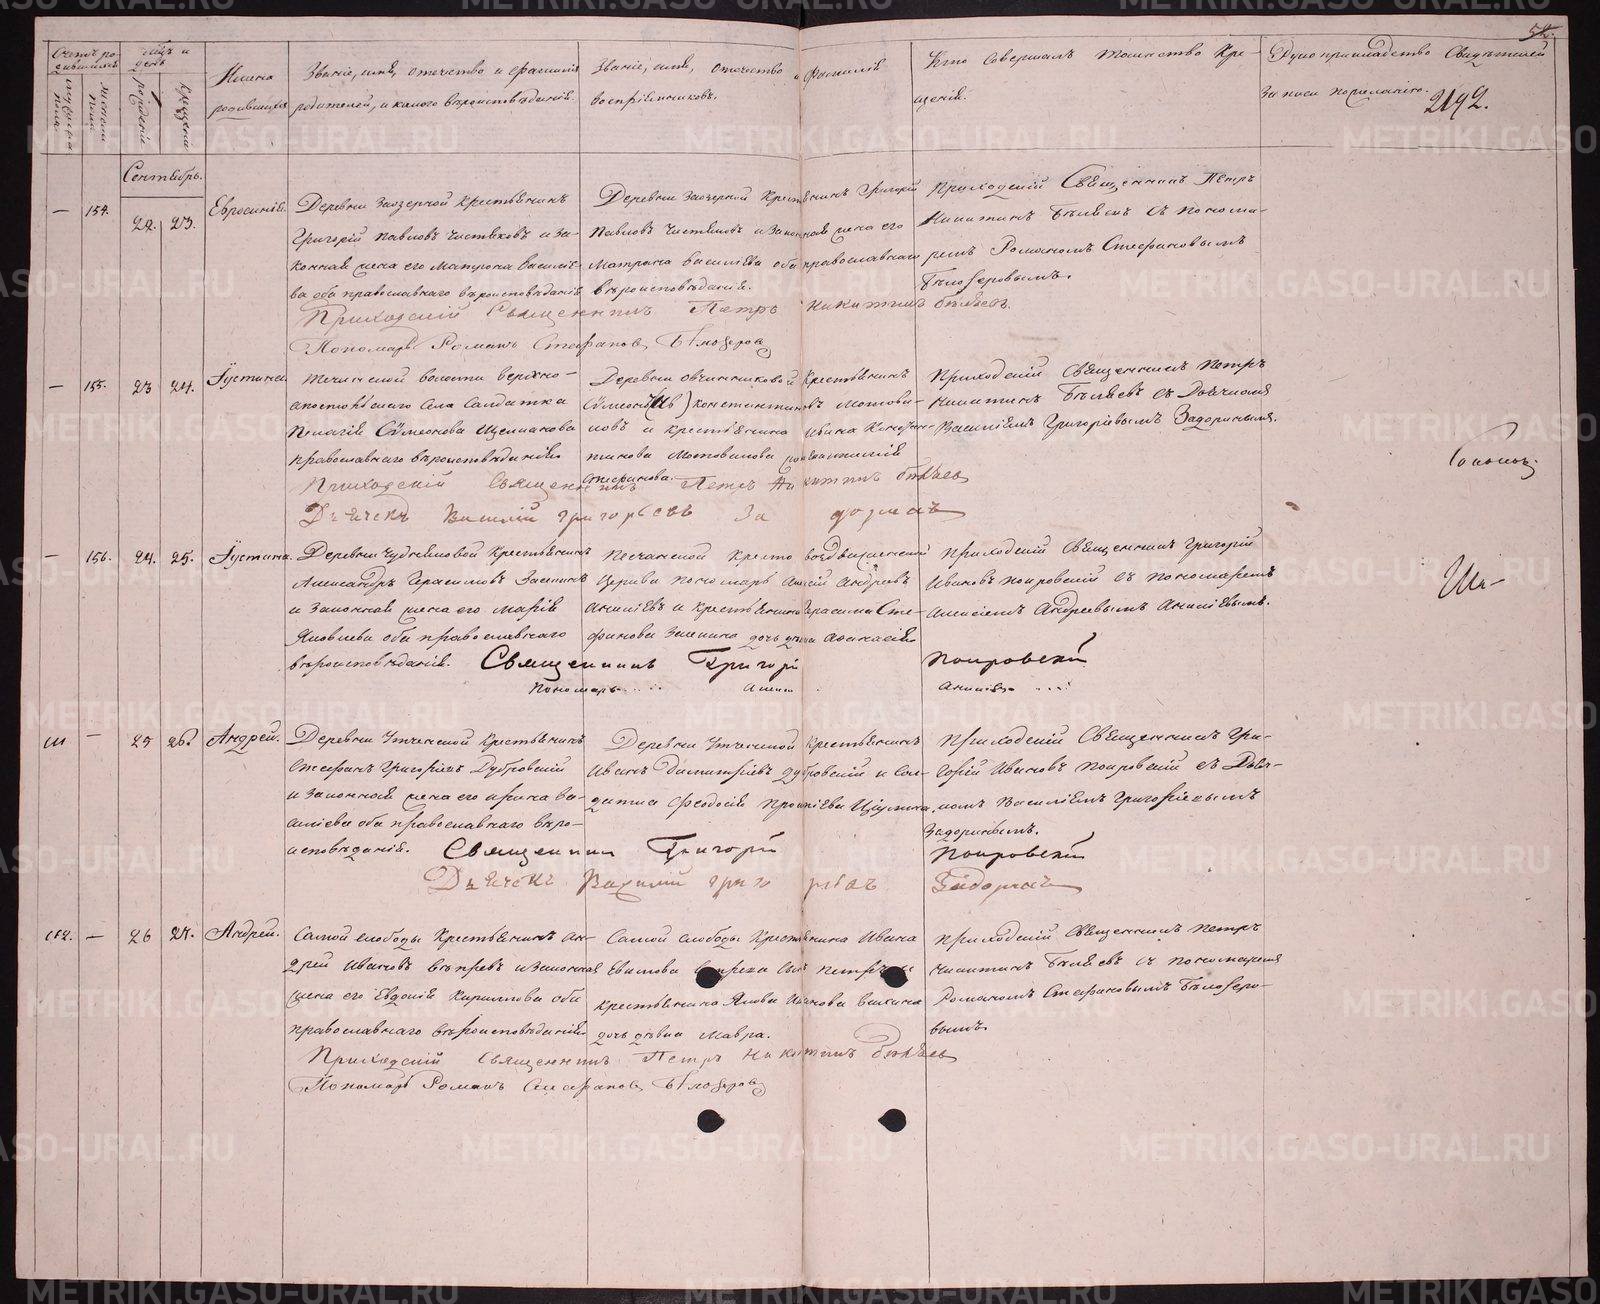 Счетъ родившихся
мужеска пола
женска пола
Мѣсяцъ и день
рожденія
крещенія
Имена родившихся
Званіе, имя, отечество и фамилія
родителей, и какого вѣроисповѣданія.
Званіе, имя, отечество и фамилія
воспріемниковъ.
Кто совершалъ таинство кре-
щенія.
Рукоприкладство свидѣтелей
записи по желанію.
2192.
Сентябрь.
— 154. 22. 23.
Евросинія.
Деревни Заозерной крестьянинъ
Григорій Павловъ Чистяковъ и за-
конная жена его Матрона Василіе-
ва оба православнаго вѣроисповѣданія
Деревни Заозерной крестьянинъ Григорій
Павловъ Чистяковъ и законная жена его
Матрона Василіева оба православнаго
вѣроисповѣданія.
Приходскій Священникъ Петръ
Никитинъ Бѣляевъ съ понома-
ремъ Романомъ Стефановымъ
Бѣлозеровымъ.
Приходскій Священникъ Петръ Никитинъ Бѣляевъ.
Пономарь Романъ Стефановъ Бѣлозеровъ
— 155. 23 24.
Іустина.
Теченской волости Верхно-
апостольскаго села солдатка
Пелагія Сѵмеонова
православнаго вѣроисповѣданія
Деревни Овчинниковой крестьянинъ
Сѵмеонъ Константиновъ Мотови-
ловъ и крестьянина Ивана Констан-
тинова Мотовилова
Стефанова.
Приходскій Священникъ Петръ
Никитинъ Бѣляевъ съ Дьячкомъ
Василіемъ Григоріевымъ Задоринымъ.
Приходскій Священникъ Петръ Никитинъ Бѣляевъ
Дьячекъ Василій Григорьевъ Задоринъ
— 156. 24. 25.
Іустина.
Деревни Чудняковой крестьянинъ
Александръ Герасимовъ
и законная жена его Марія
Яковлева оба православнаго
вѣроисповѣданія.
Песчанской Кресто воздвиженской
церкви пономарь Алексій Андреевъ
Ананіевъ и крестьянина Герасима Сте-
фанова дочь дѣвица Афанасія
Приходскій Священникъ Григорій
Ивановъ Покровскій съ пономаремъ
Алексіемъ Андреевымъ Ананіевымъ.
Священникъ Григорій Покровскій
Пономарь Алексій Ананіевъ
111 — 25 26.
Андрей.
Деревни Утченской крестьянинъ
Стефанъ Григоріевъ Дубровскій
и законная жена его Ирина Ва-
силіева оба православнаго вѣро-
исповѣданія.
Деревни Утченской крестьянинъ
Иванъ Димитріевъ Дубровскій и сол-
датка Феодосія
Приходскій Священникъ Гри-
горій Ивановъ Покровскій съ Дьяч-
комъ Василіемъ Григоріевымъ
Задоринымъ.
Священникъ Григорій Покровскій
Дьячекъ Василій Григорьевъ Задоринъ
112. — 26 27.
Андрей.
Самой слободы крестьянинъ Ан-
дрей Ивановъ Вепревъ и законная
жена его Евдокія Кириллова оба
православнаго вѣроисповѣданія
Самой слободы крестьянина Ивана
Евдокимова Вепрева сынъ Петръ и
крестьянина Якова Иванова
дочь дѣвица Мавра.
Приходскій Священникъ Петръ
Никитинъ Бѣляевъ съ пономаремъ
Романомъ Стефановымъ Бѣлозеро-
вымъ.
Приходскій Священникъ Петръ Никитинъ Бѣляевъ
Пономарь Романъ Стефановъ Бѣлозеровъ
METRIKI.GASO-URAL.RU